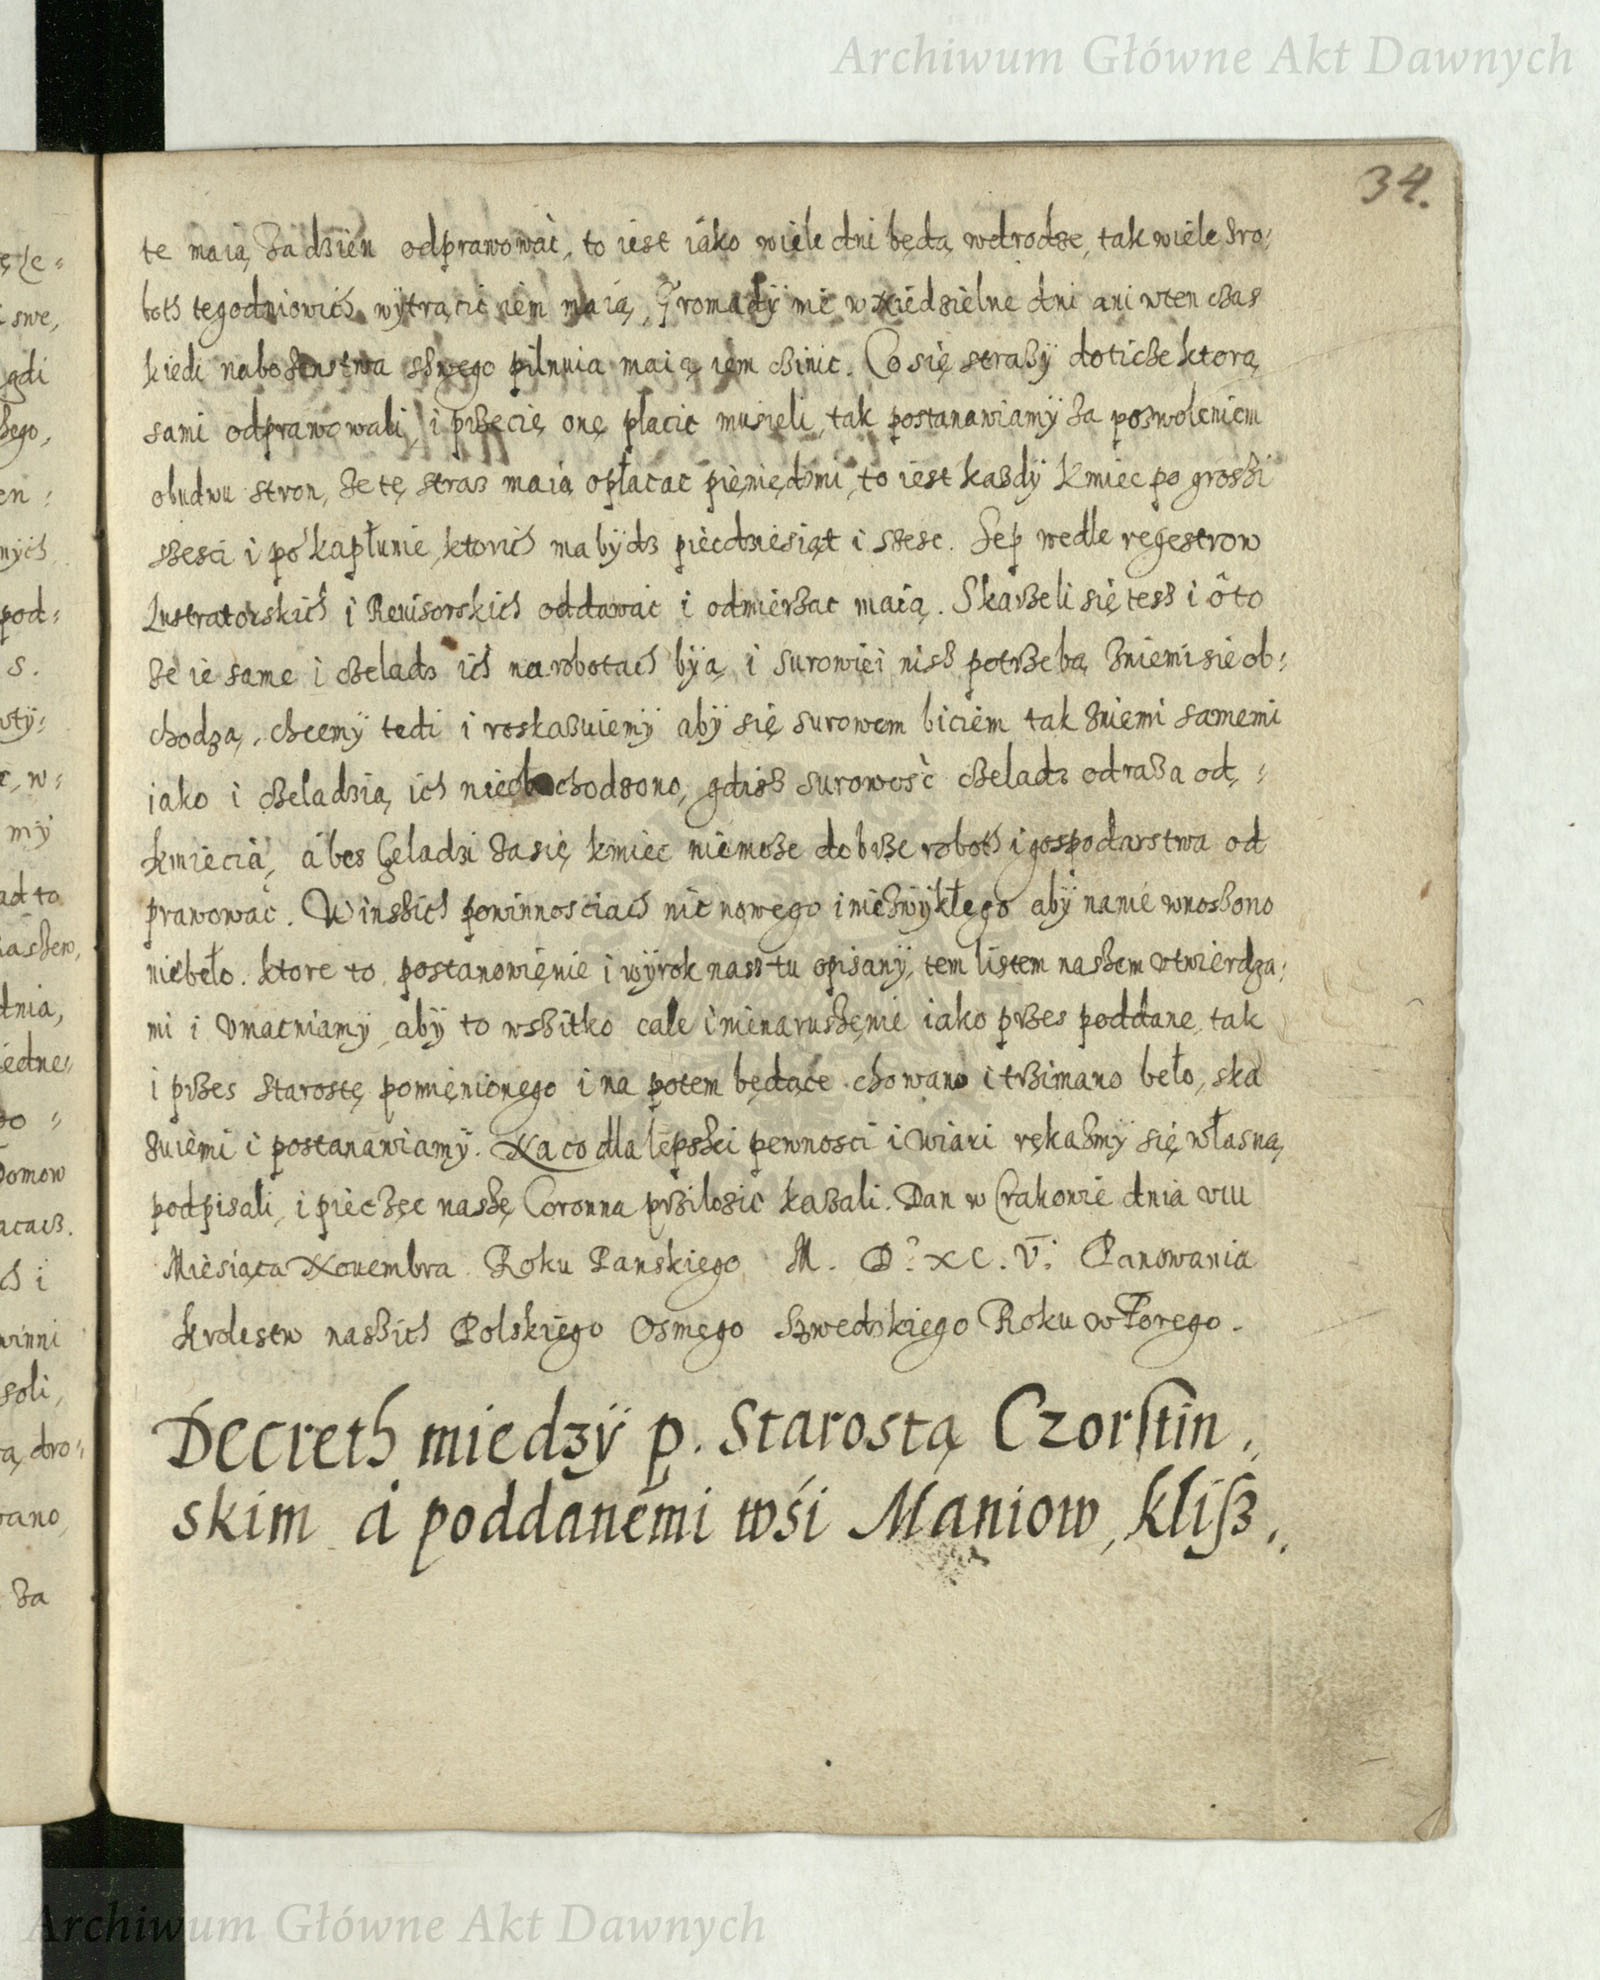 Archiwum Główne Akt Dawnych
34.
te maią za dzień odprawować, to iest iáko wiele dni będą wdrodze, tak wiele zro:
both tegodniowich wytrącić iem maią, Gromadÿ nie w Niedzielne dni ani wten czas
kiedi nabozenstwa Bozego pilnuia maią iem czinic. Co się strazÿ doticze ktorą
sami odprawowali, i przecię onę płacić musieli, tak postanawiamÿ za pozwoleniem
obudwu stron, ze tę straz maią opłacac pieniędzmi, to iest kazdÿ kmiec po groszi
szesci i po kapłunie, ktorich ma bÿdz piecdziesiąt i szesc. Sep wedle regestrow
Lustratorskich i Reuisorskich oddawac i odmierzac maią. Skarzeli się tesz i ô to
ze ie same i czeladz ich na robotach bÿą i surowiei nisz potrzeba zniemi sie ob:
chodzą, chcemÿ tedi i roskazuiemÿ abÿ się surowem biciem tak zniemi samemi
iako i czeladzią ich nieobchodzono, gdisz surowość czeladz odraza od :
kmiecia, á bes Czeladzi zasię kmiec niemoze dobrze roboth i gospodarstwa od
prawować. W inszich powinnosciach nic nowego i niezwÿkłego abÿ nanie wnoszono
niebeło. ktore to postanowięnie i wÿrok nasz tu opisanÿ, tem listem naszem vtwierdza:
mi i vmacniamÿ, abÿ to wszitko cale i nienaruszęnie iako przes poddane, tak
i przes starostę pomięnionego i na potem będące chowano i trzimano beło, ska
zuiemi i postanawiamÿ. Na co dla lepszei pewnosci i wiari rękazmÿ się własną
podpisali, i pieczęc naszę Coronna przilozic kazali. Dan w Crakowie dnia VIII
Miesiąca Nouembra Roku Panskiego M. D. XC. V. Panowania
krolestw naszich Polskiego Osmego Szwedzkiego Roku wtorego.
Decreth miedzÿ p. Starostą Czorstin,,
skim á poddanemi wśi Maniow, klisz,,
Archiwum Główne Akt Dawnych